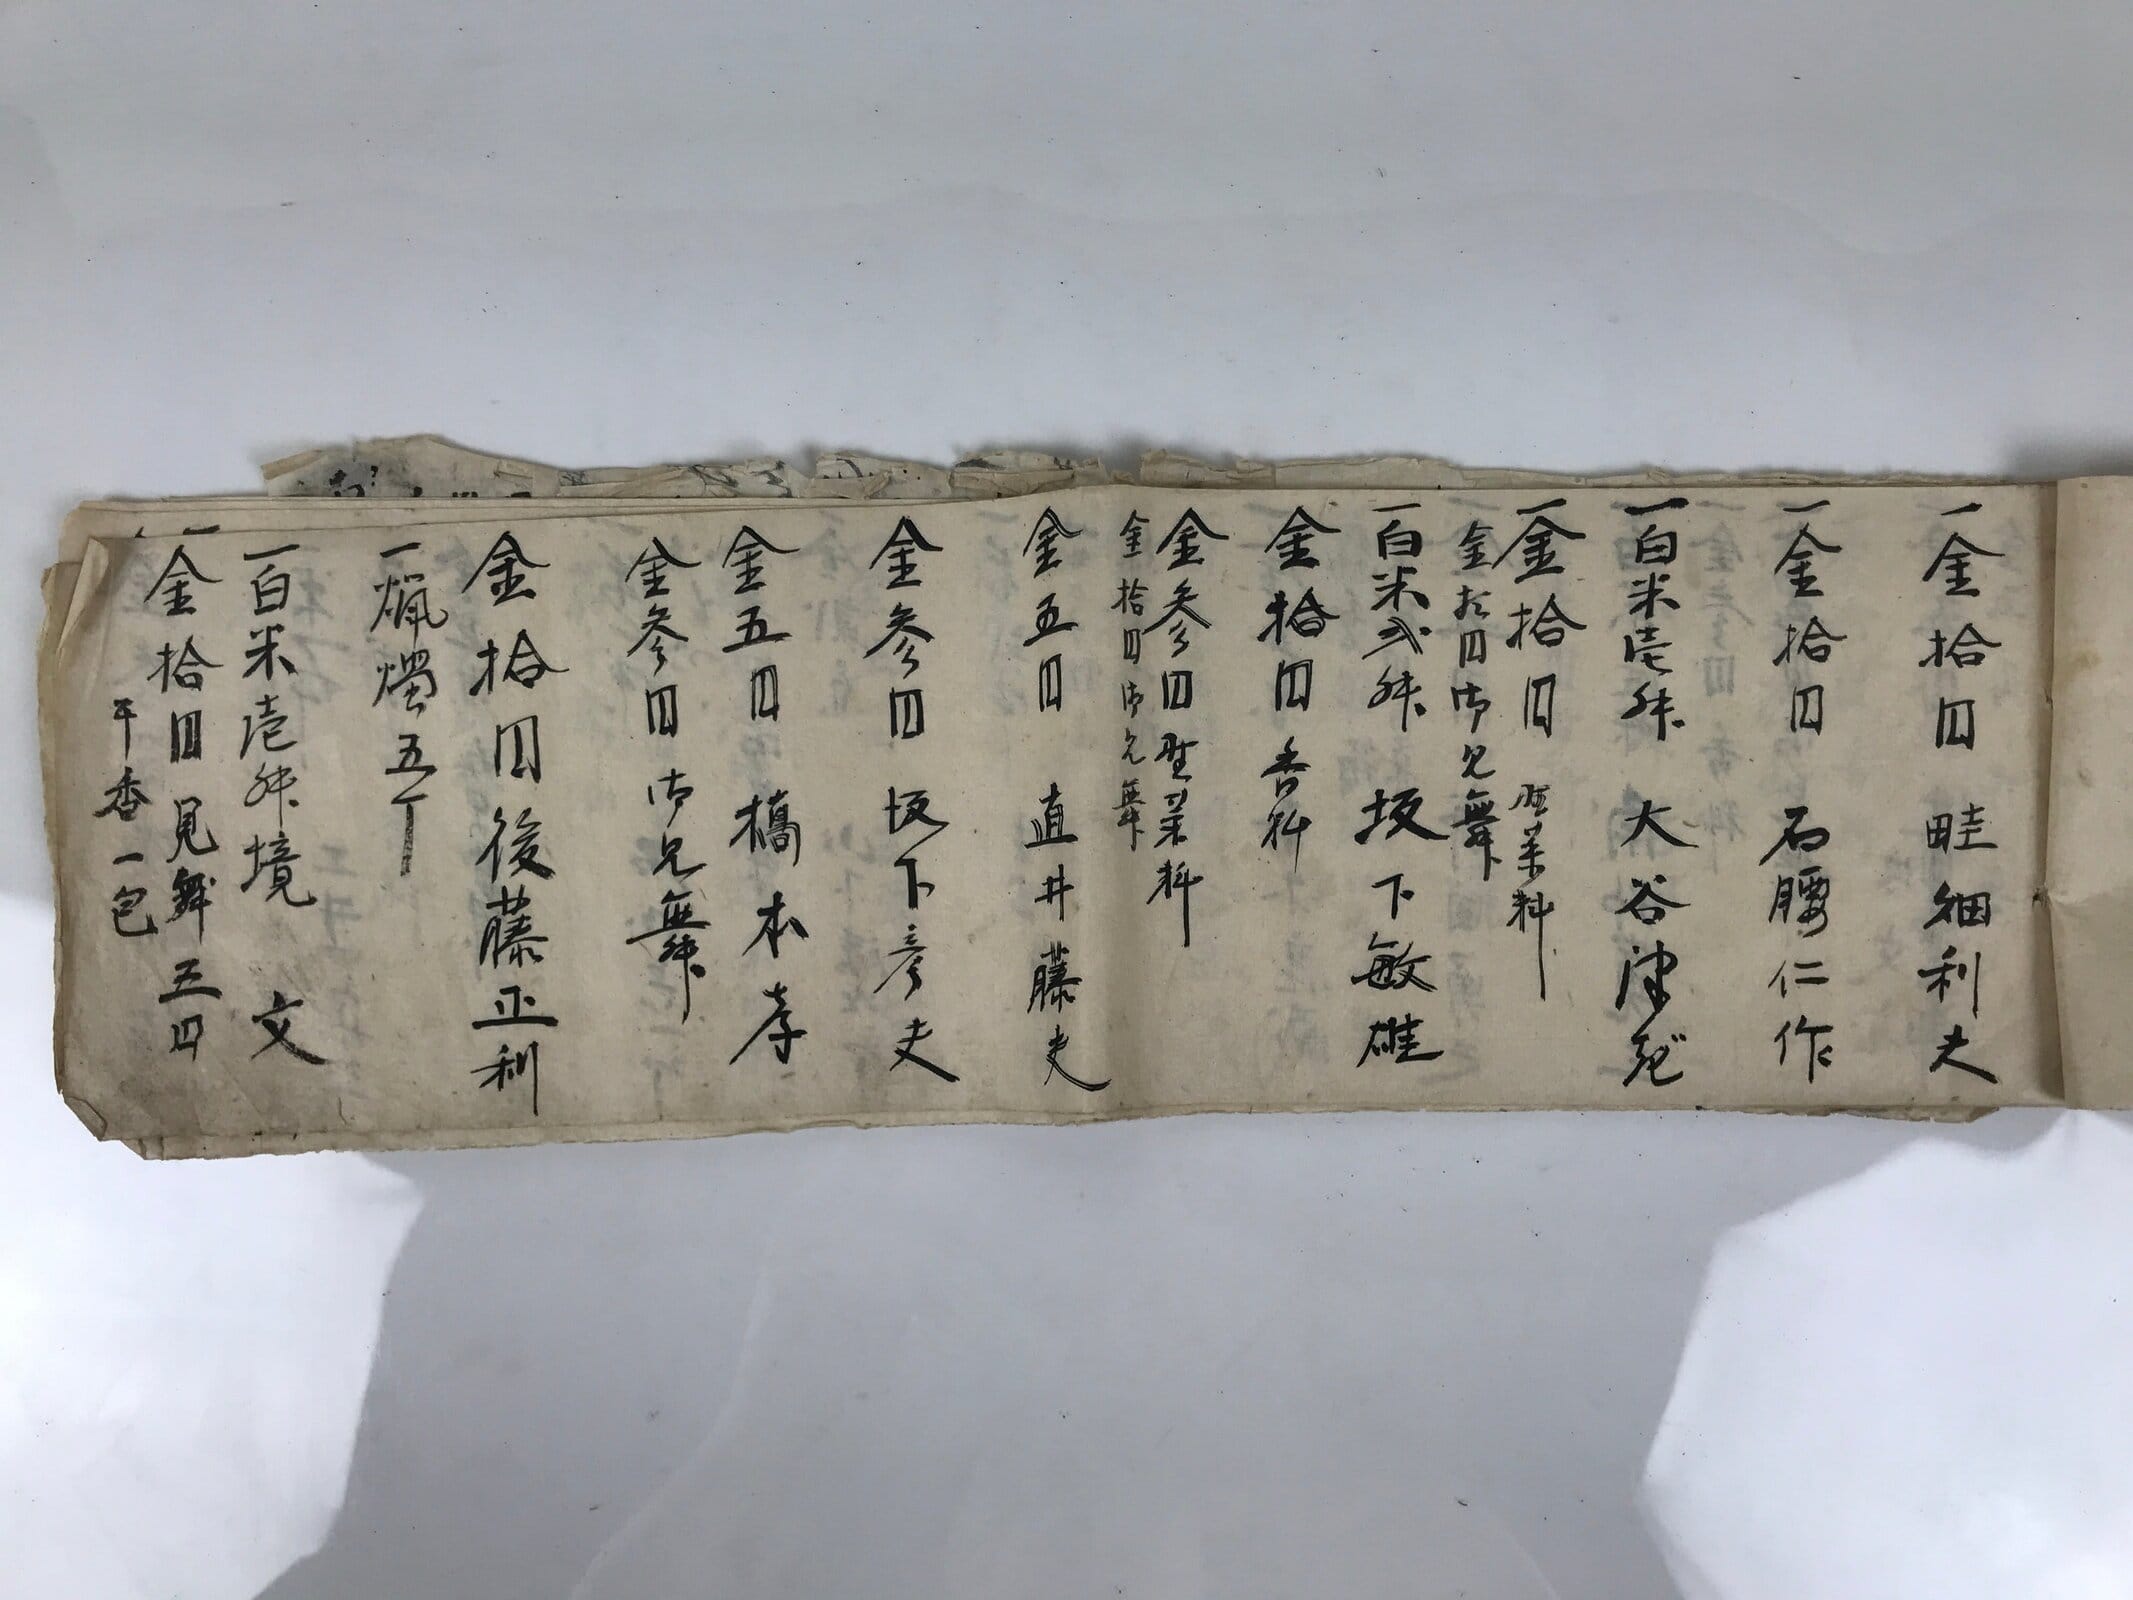 一金拾円 畦畑利夫
一金拾円 石腰仁作
一白米壱升 大谷津
一金拾円 野菜料
金拾円御見舞
一白米弐升 坂下敏雄
金拾円 香料
金参円野菜料
金拾円御見舞
金五円 直井藤夫
金参円 坂下彦夫
金五円 橋本孝
金参円御見舞
金拾円後藤正利
一蝋燭五丁
一白米壱升境 文
一金拾円見舞五円
平香一包